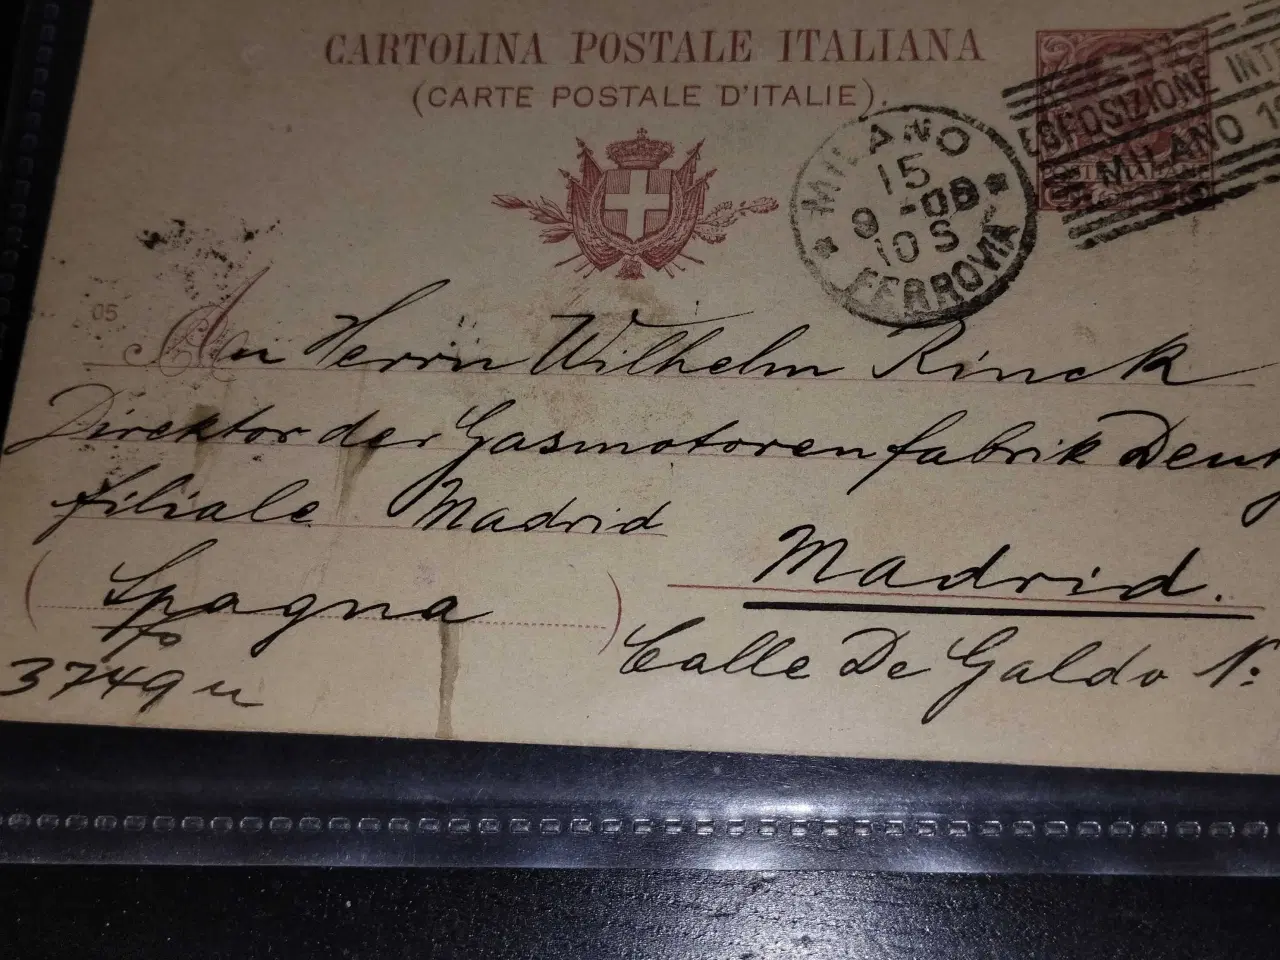 CARTOLINA POSTALE ITALIANA
(CARTE POSTALE D'ITALIE).
ESPOSIZIONE INTE
MILANO 1
MILANO
15
9 -06
10 S
FERROVIA
05
An Herrn Wilhelm Rinck
Direktor der Gasmotorenfabrik Deutz
filiale Madrid
Madrid.
(Spagna)
Calle De Galdo Nº
3749